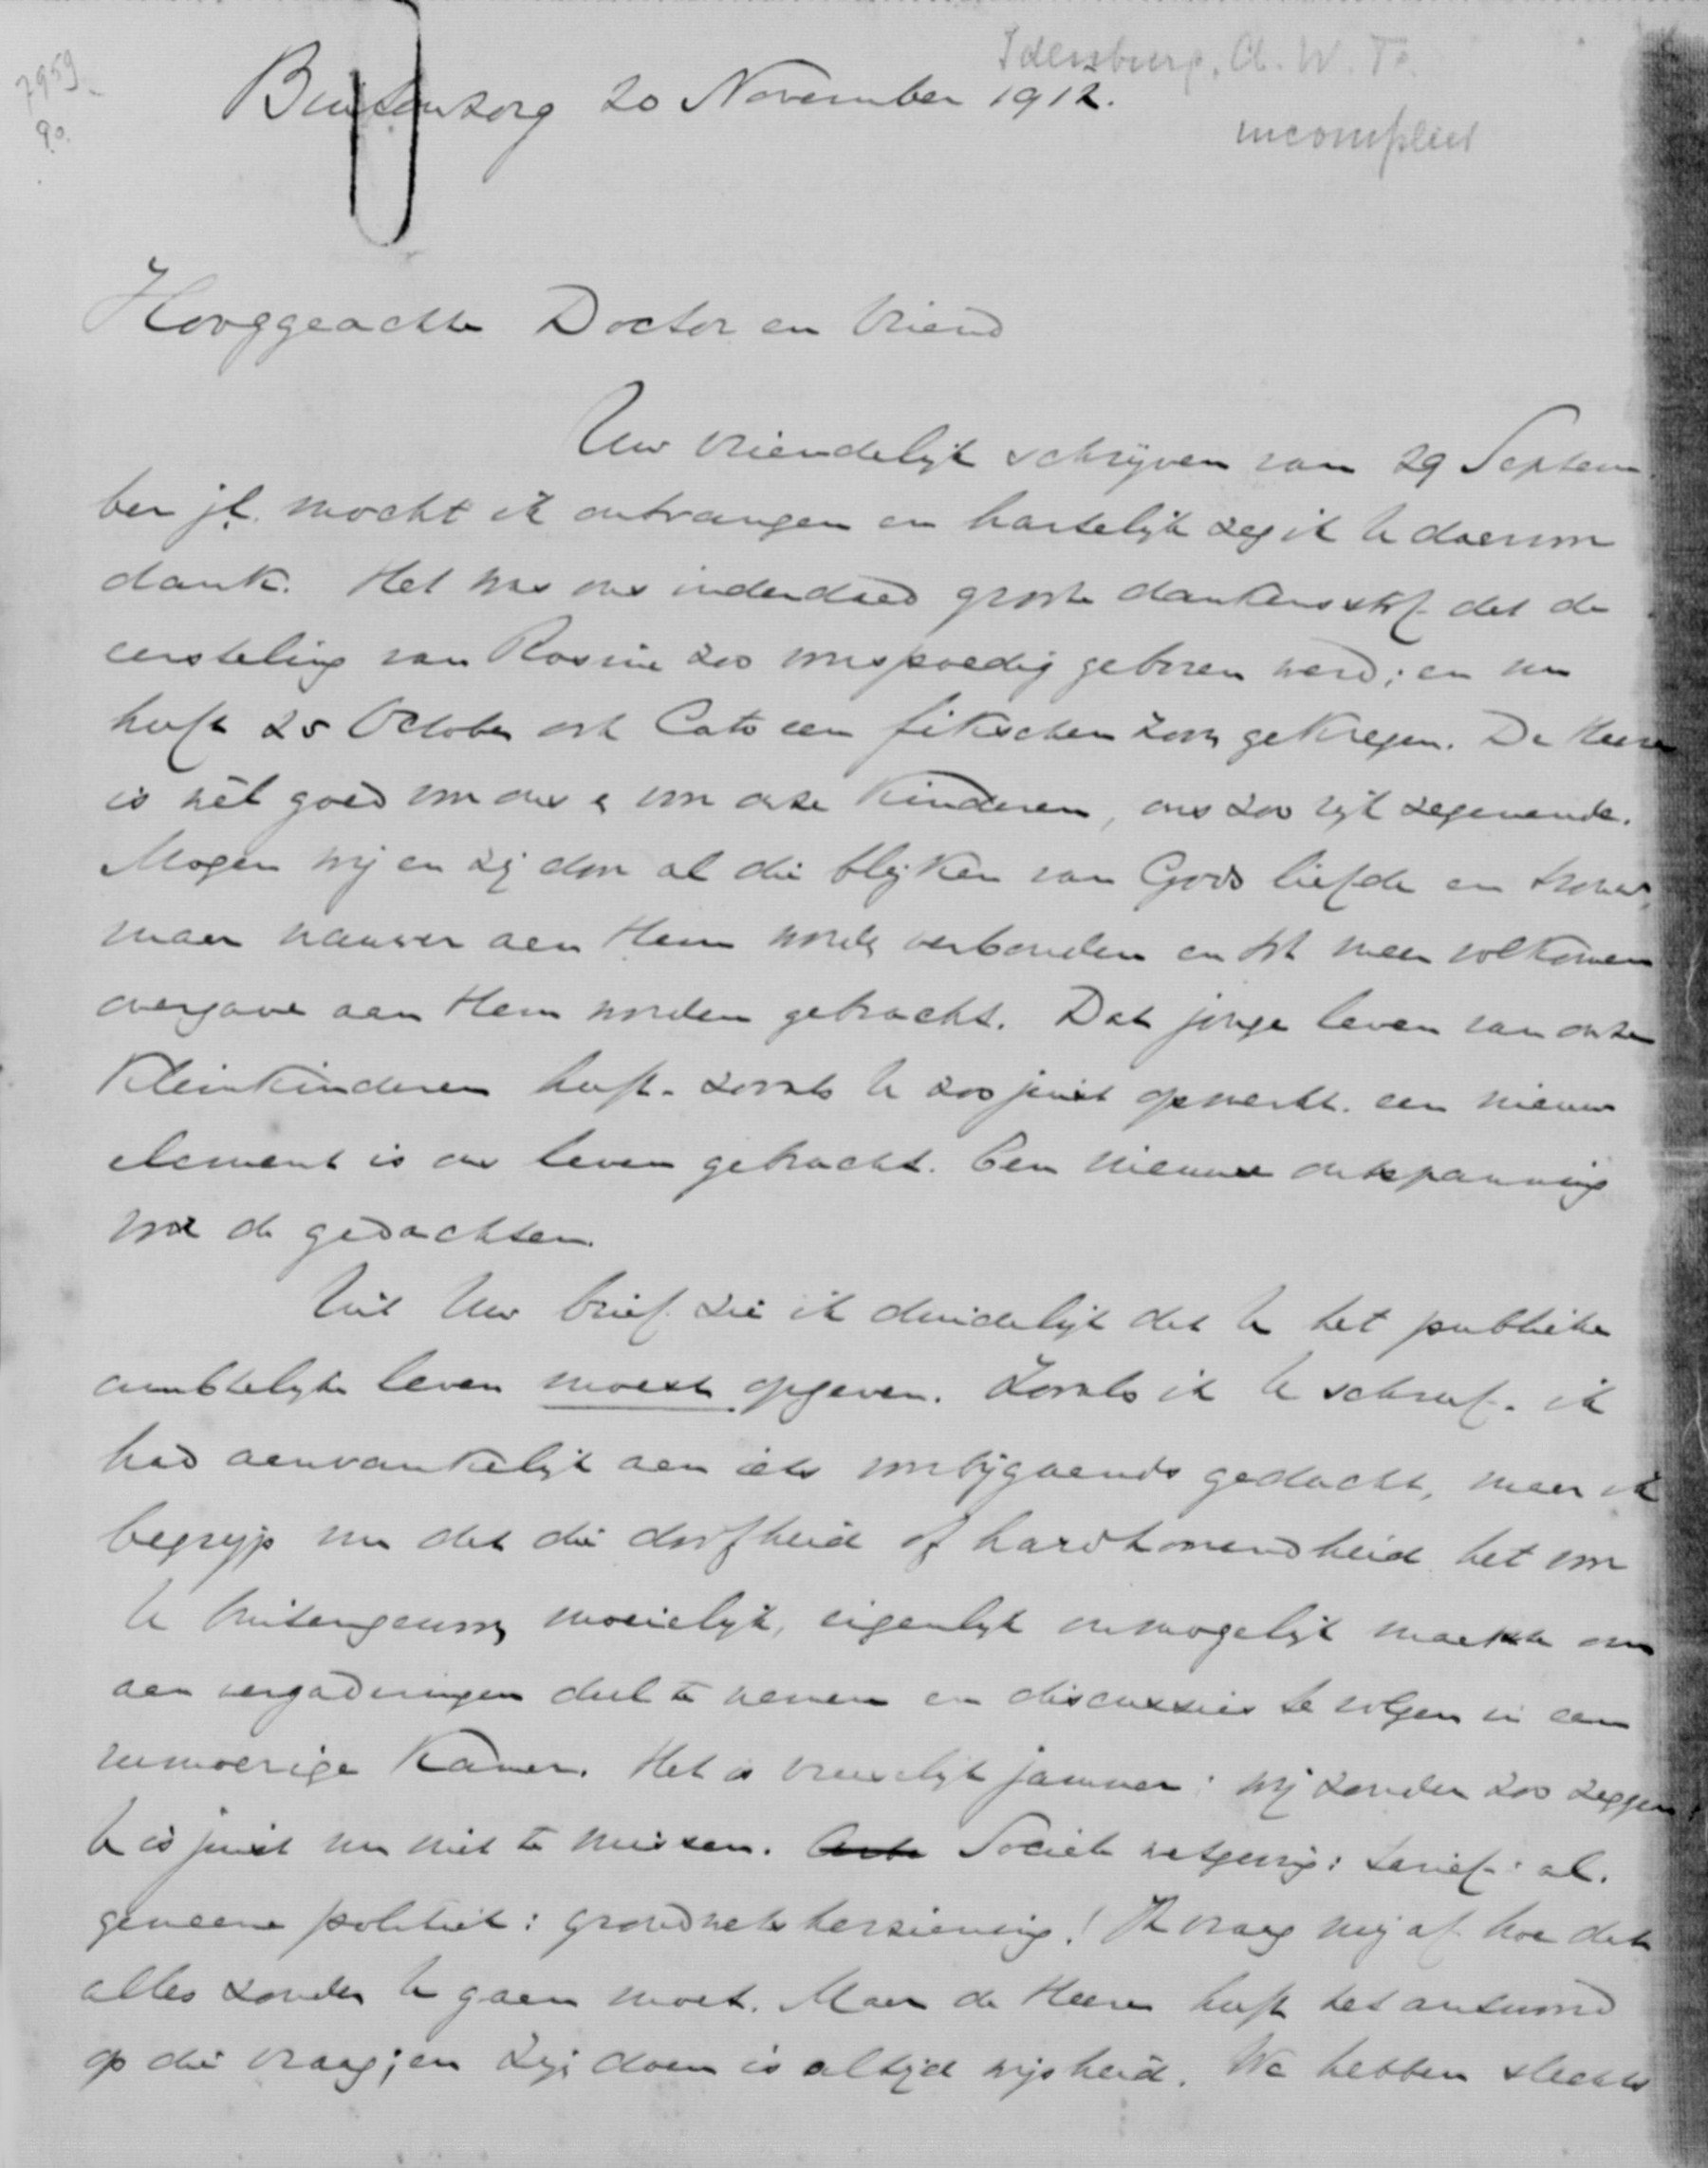 7959
90.
Idenburg, A. W. F.
Buitenzorg 20 November 1912.
incompleet
Hooggeachte Doctor en Vriend
Uw vriendelijk schrijven van 29 Septem
ber jl. mocht ik ontvangen en hartelijk zeg ik U daarvoor
dank. Het was ons inderdaad groote dankensstof dat de
eersteling van Rosine zoo voorspoedig geboren werd; en nu
heeft 25 October ook Cato een fikschen zoon gekregen. De Heere
is wèl goed voor ons & voor onze kinderen, ons zoo rijk zegenende.
Mogen wij en zij door al die blijken van Gods liefde en trouw,
maar nauwer aan Hem worden verbonden en tot meer volkomen
overgave aan Hem worden gebracht. Dat jonge leven van onze
kleinkinderen heeft - zooals U zoo juist opmerkt - een nieuw
element in ons leven gebracht. Een nieuwe ontspanning
voor de gedachten.
Uit Uw brief zie ik duidelijk dat U het publieke
ambtelijke leven moest opgeven. Zooals ik U schreef - ik
had aanvankelijk aan iets voorbijgaands gedacht, maar ik
begrijp nu dat die doofheid of hardhoorendheid het voor
U buitengewoon moeielijk, eigenlijk onmogelijk maakte om
aan vergaderingen deel te nemen en discussies te volgen in een
rumoerige Kamer. Het is vreeselijk jammer: wij zouden zoo zeggen:
U is juist nu niet te missen. Sociale wetgeving: tarief: al.
gemeene politiek: grondwetsherziening! Ik vraag mij af hoe dat
alles zonder U gaan moet. Maar de Heere heeft het antwoord
op die vraag; en Zijn doen is altijd wijsheid. We hebben slechts